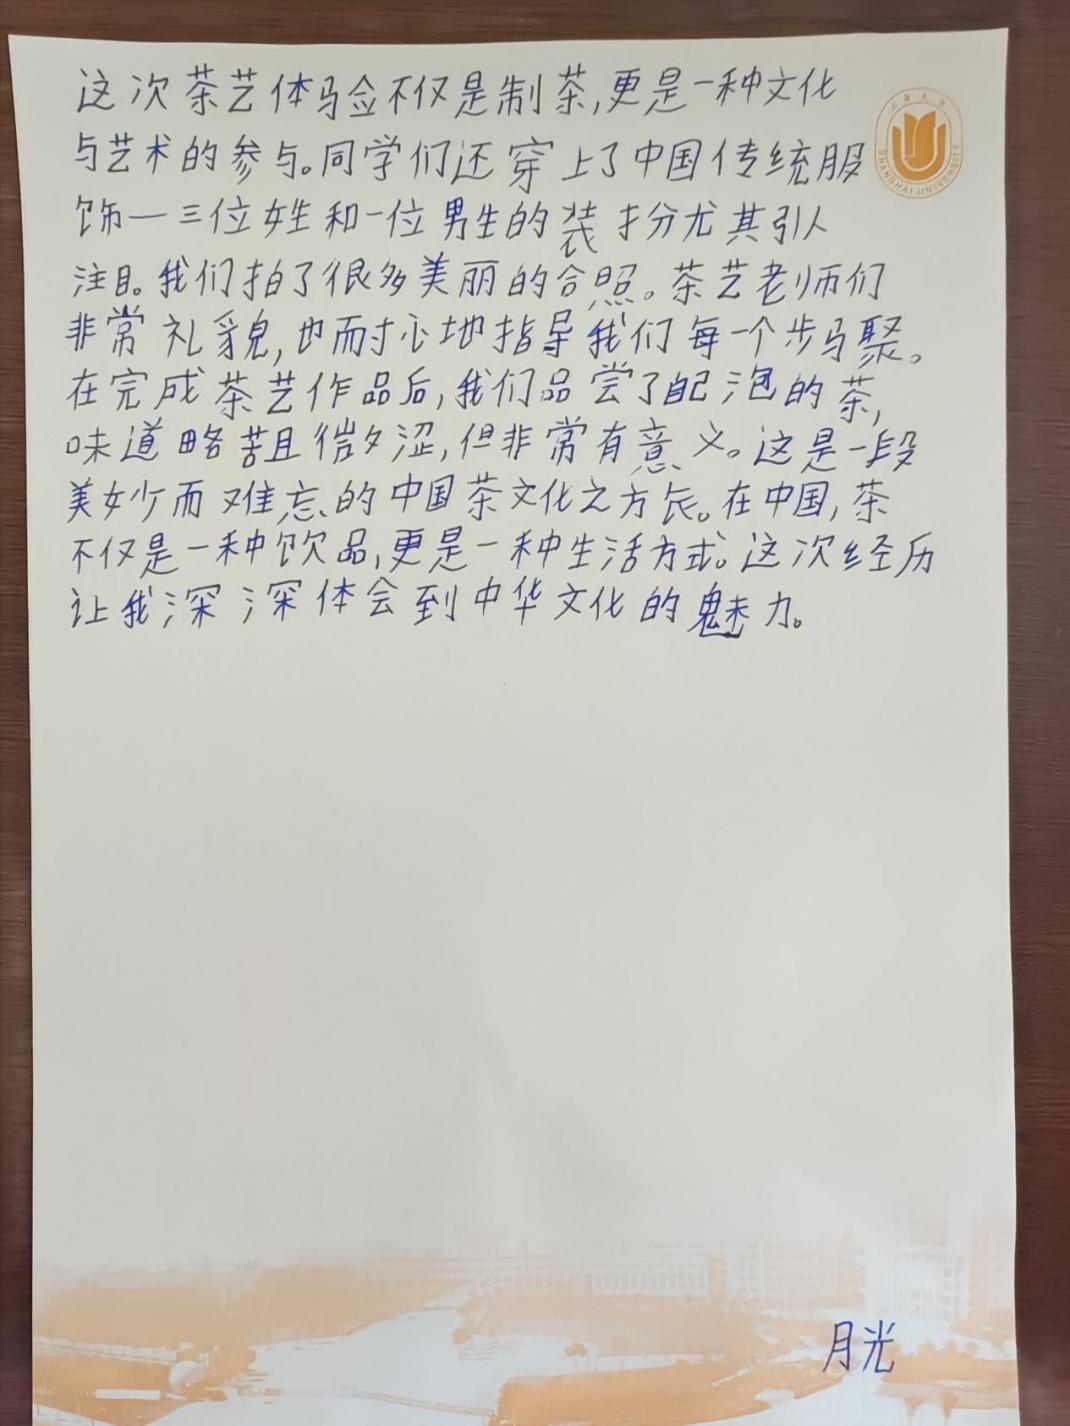 这次茶艺体验不仅是制茶,更是一种文化
与艺术的参与。同学们还穿上了中国传统服
饰—三位女生和一位男生的装扮尤其引人
注目。我们拍了很多美丽的合照。茶艺老师们
非常礼貌,也耐心地指导我们每一个步骤。
在完成茶艺作品后,我们品尝了自己泡的茶,
味道略苦且微涩,但非常有意义。这是一段
美妙而难忘的中国茶文化之旅。在中国,茶
不仅是一种饮品,更是一种生活方式。这次经历
让我深深体会到中华文化的魅力。
上海大学
SHANGHAI UNIVERSITY
月光